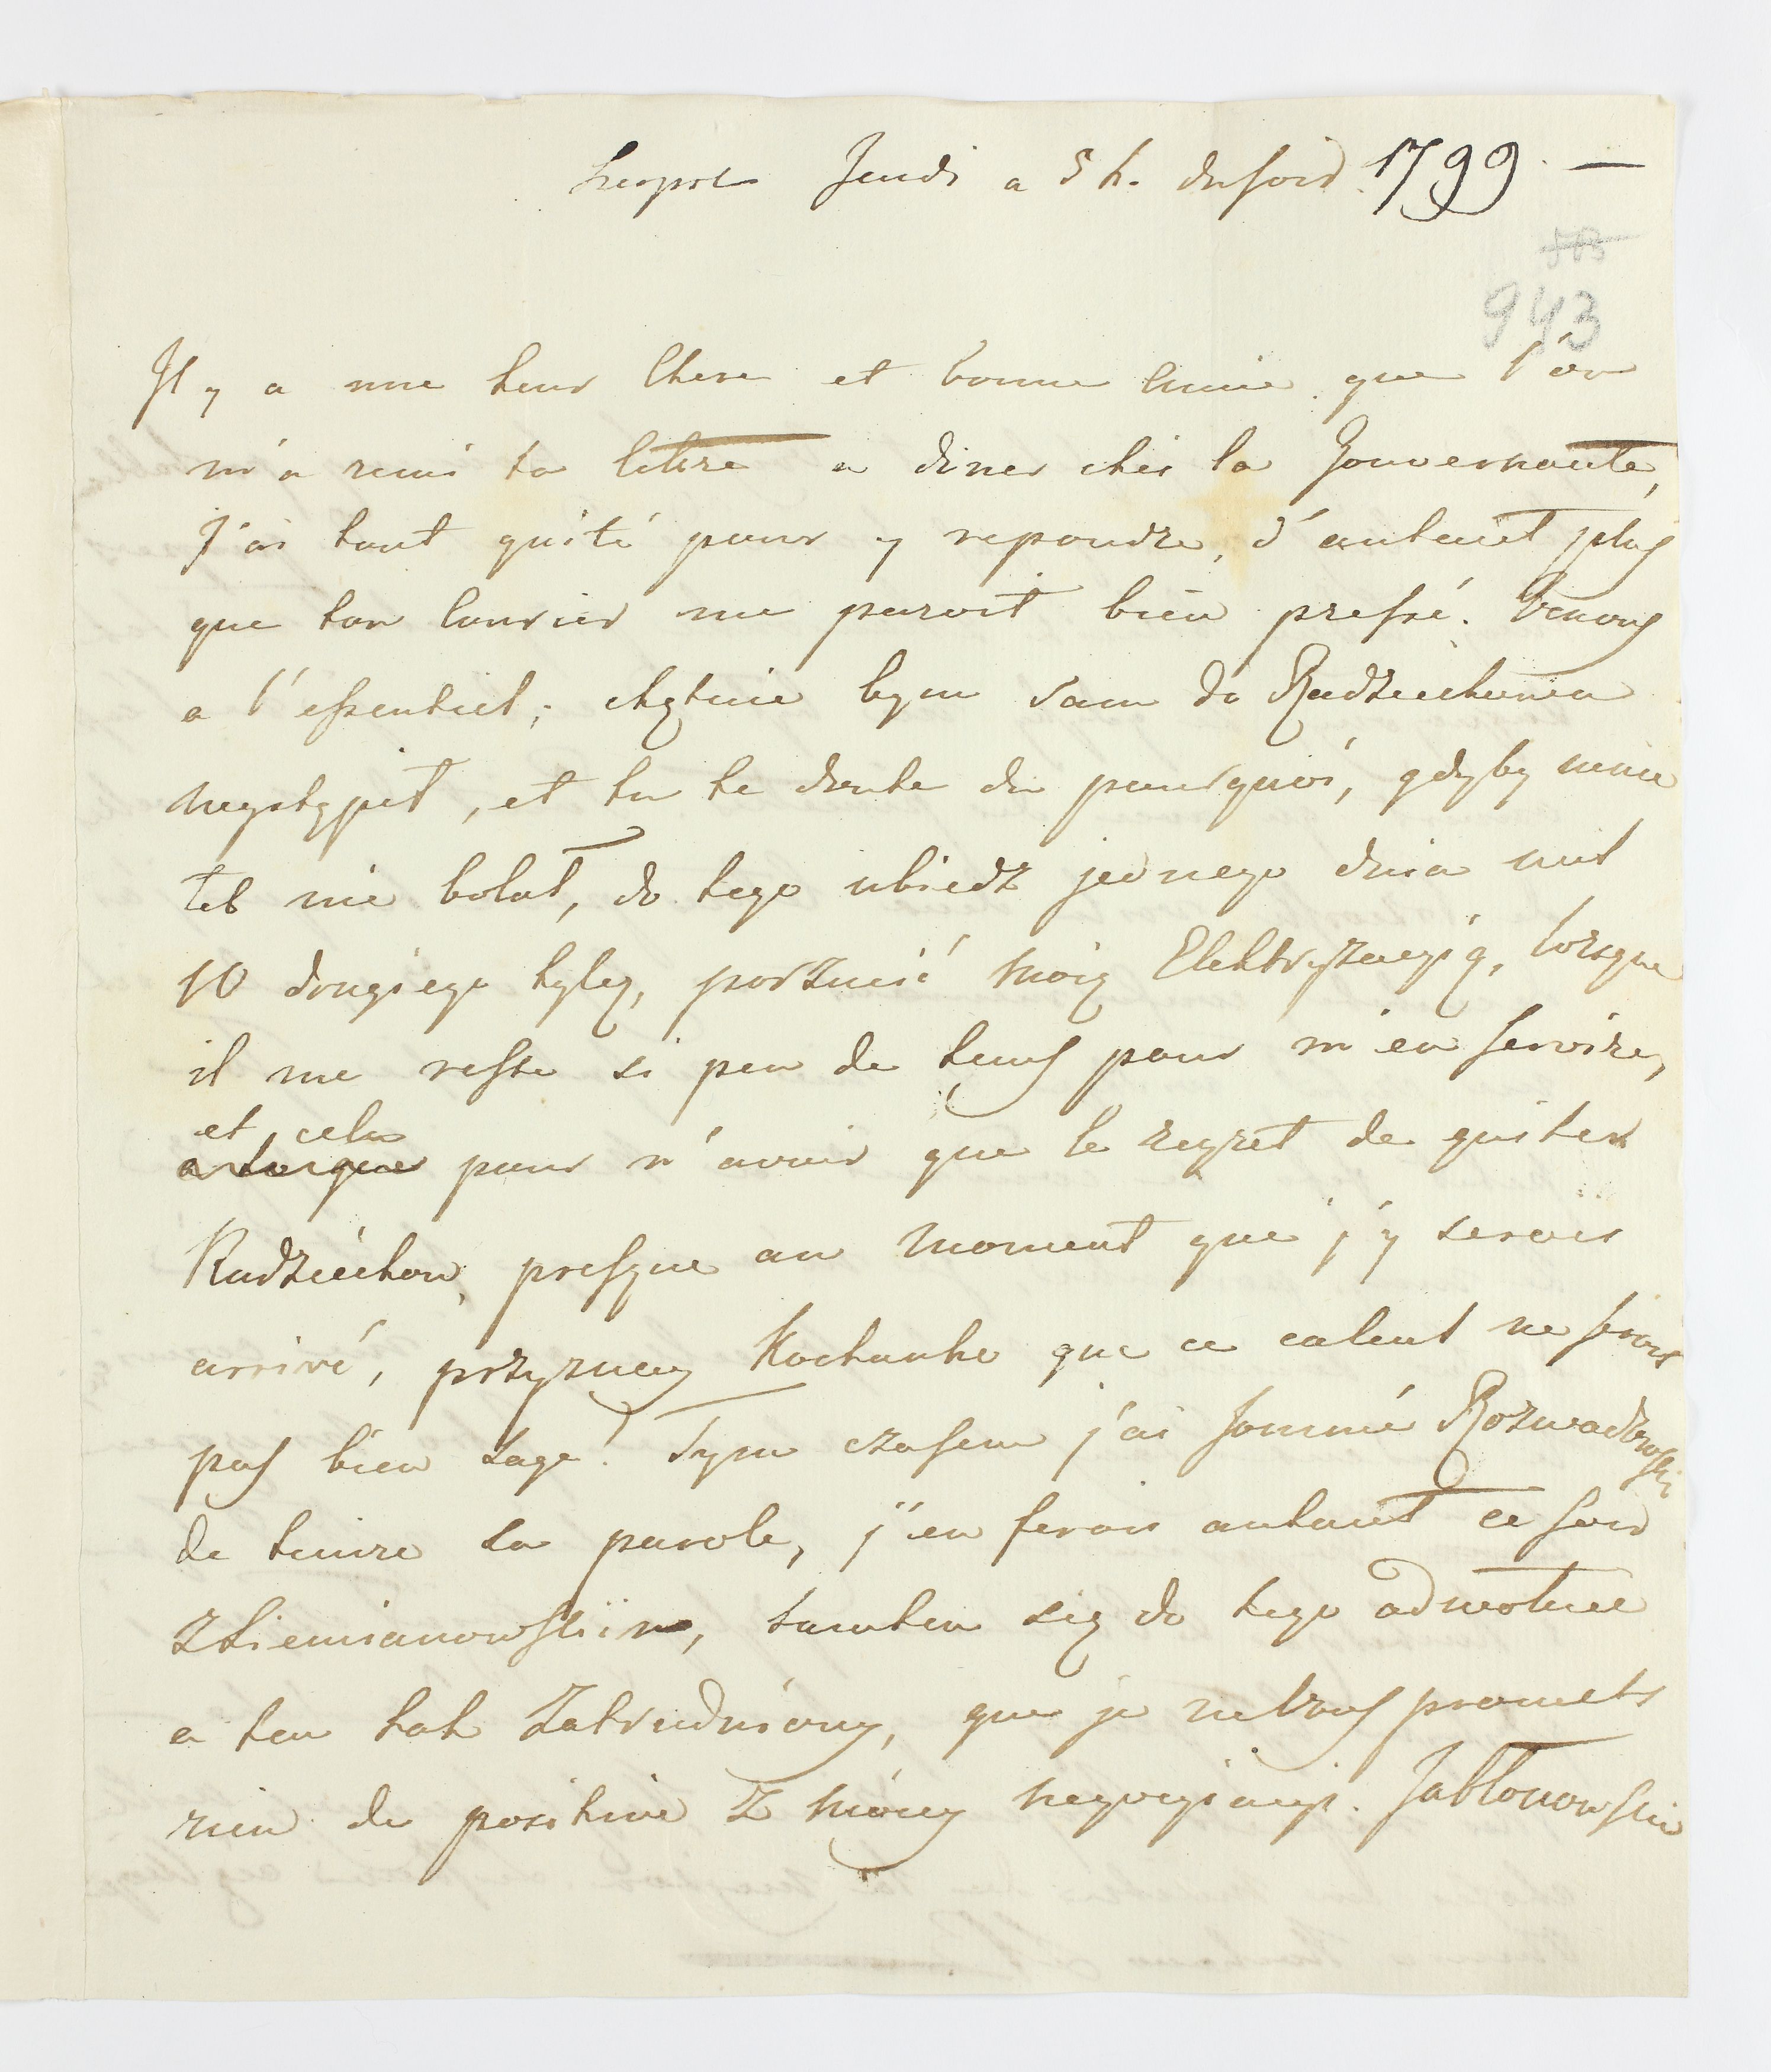 Leopol Jeudi a 5 h. du soir 1799. —
943
Il y a une heur Chere et bonne Amie que l'on
m'a remi ta lettre a diner chés la Gouvernante,
j'ai tout quité pour y repondre, d'autant plus
que ton Courier me paroit bien pressé. Venons
a l'essentiel; chętnie bym sam do Radziechowa
wystąpił, et tu te doute du pourquoi, gdyby mnie
łeb nie bolał, do tego ubiedz jednego dnia mil
10 drugiego tyleż, porzucić moią Elektryzacyią, lorsque
il me reste si peu de tems pour m'en servire,
et cela
pour n'avoir que le regret de quiter
Radziechow, presque au moment que j'y serois
arrivé, przyznay Kochanko que ce calcul ne serois
pas bien sage! Tym czasem j'ai sommé Rozwadowski
de tenire sa parole, j'en ferois autant ce soir
z Siemianowskiim, tamten się do tego odwołuie
a ten tak zatrudniony, que je ne vous promets
rien de positive z moiey negocyiacyi. Jabłonowskie